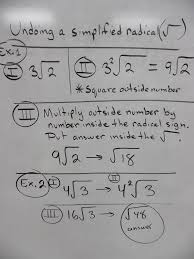 Undoing a simplified radical (√)
Ex.1
I 3√2 II 3²√2 = 9√2
* Square outside number
III Multiply outside number by
number inside the radical sign.
Put answer inside the √.
9√2 → √18
Ex. 2 I 4√3 II → 4²√3
III 16√3 → √48
answer